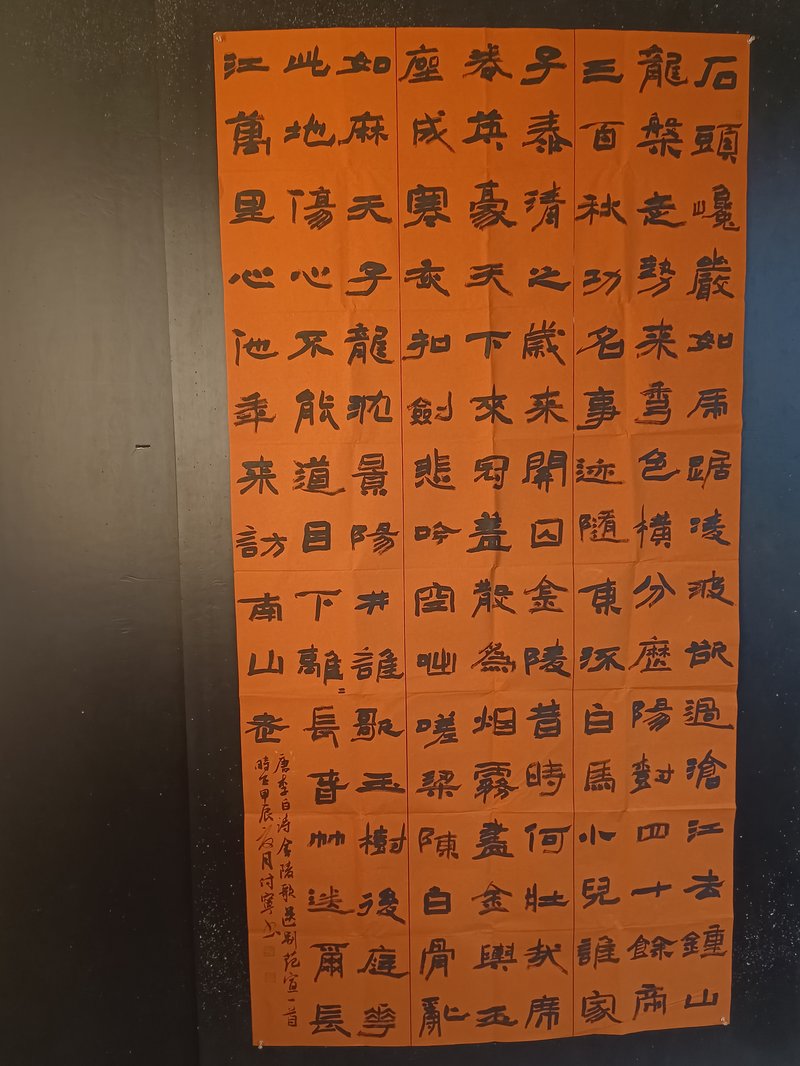 石頭巉巖如虎踞淩波欲過滄江去鍾山
龍槃走勢来秀色橫分歷陽樹四十餘帝
三百秋功名事迹隨東流白馬小兒誰家
子泰清之歲来開囚金陵昔時何壯哉席
卷英豪天下來冠盖散為烟霧盡金輿玉
座成寒灰扣劍悲吟空咄嗟梁陳白骨亂
如麻天子龍沈景陽井誰歌玉樹後庭花
此地傷心不能道目下離〻長春艸送爾長
江萬里心他年来訪南山老
唐李白詩金陵歌送别范宣一首
時在甲辰夏月付寧书